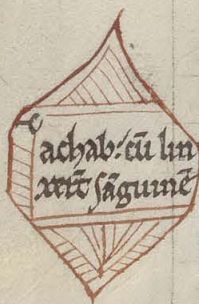 achab: cū lin
xerīt sāguinē